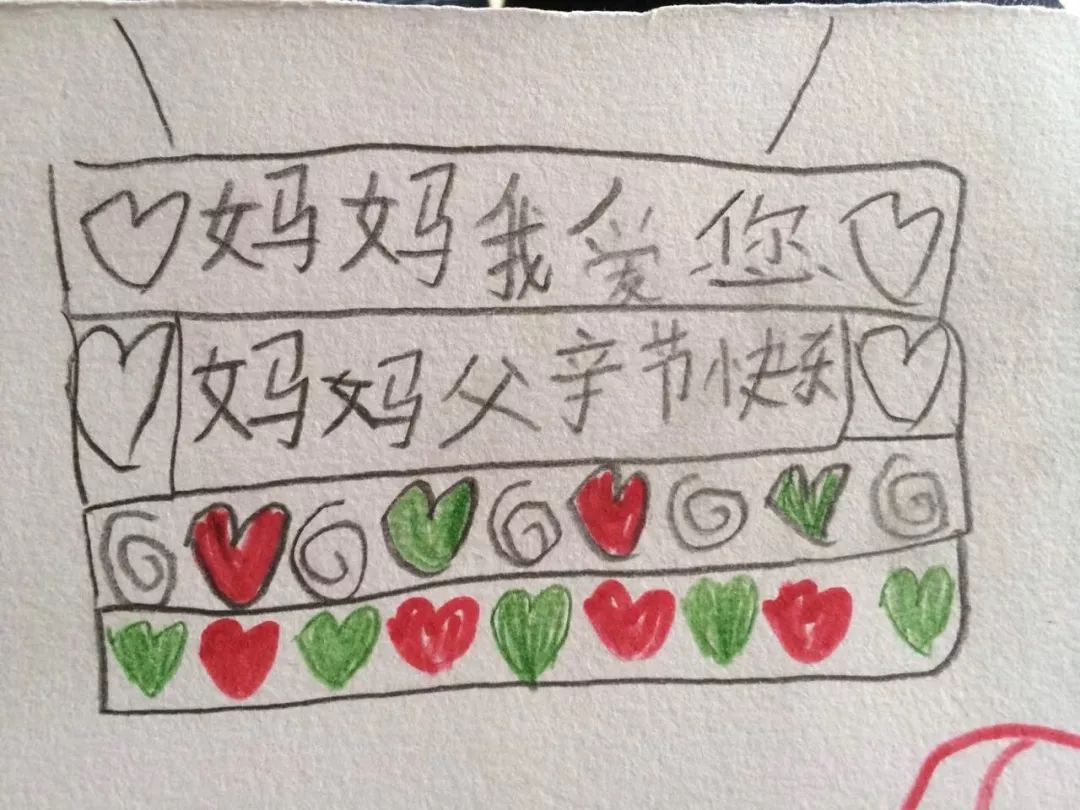 妈妈我爱您
妈妈父亲节快乐